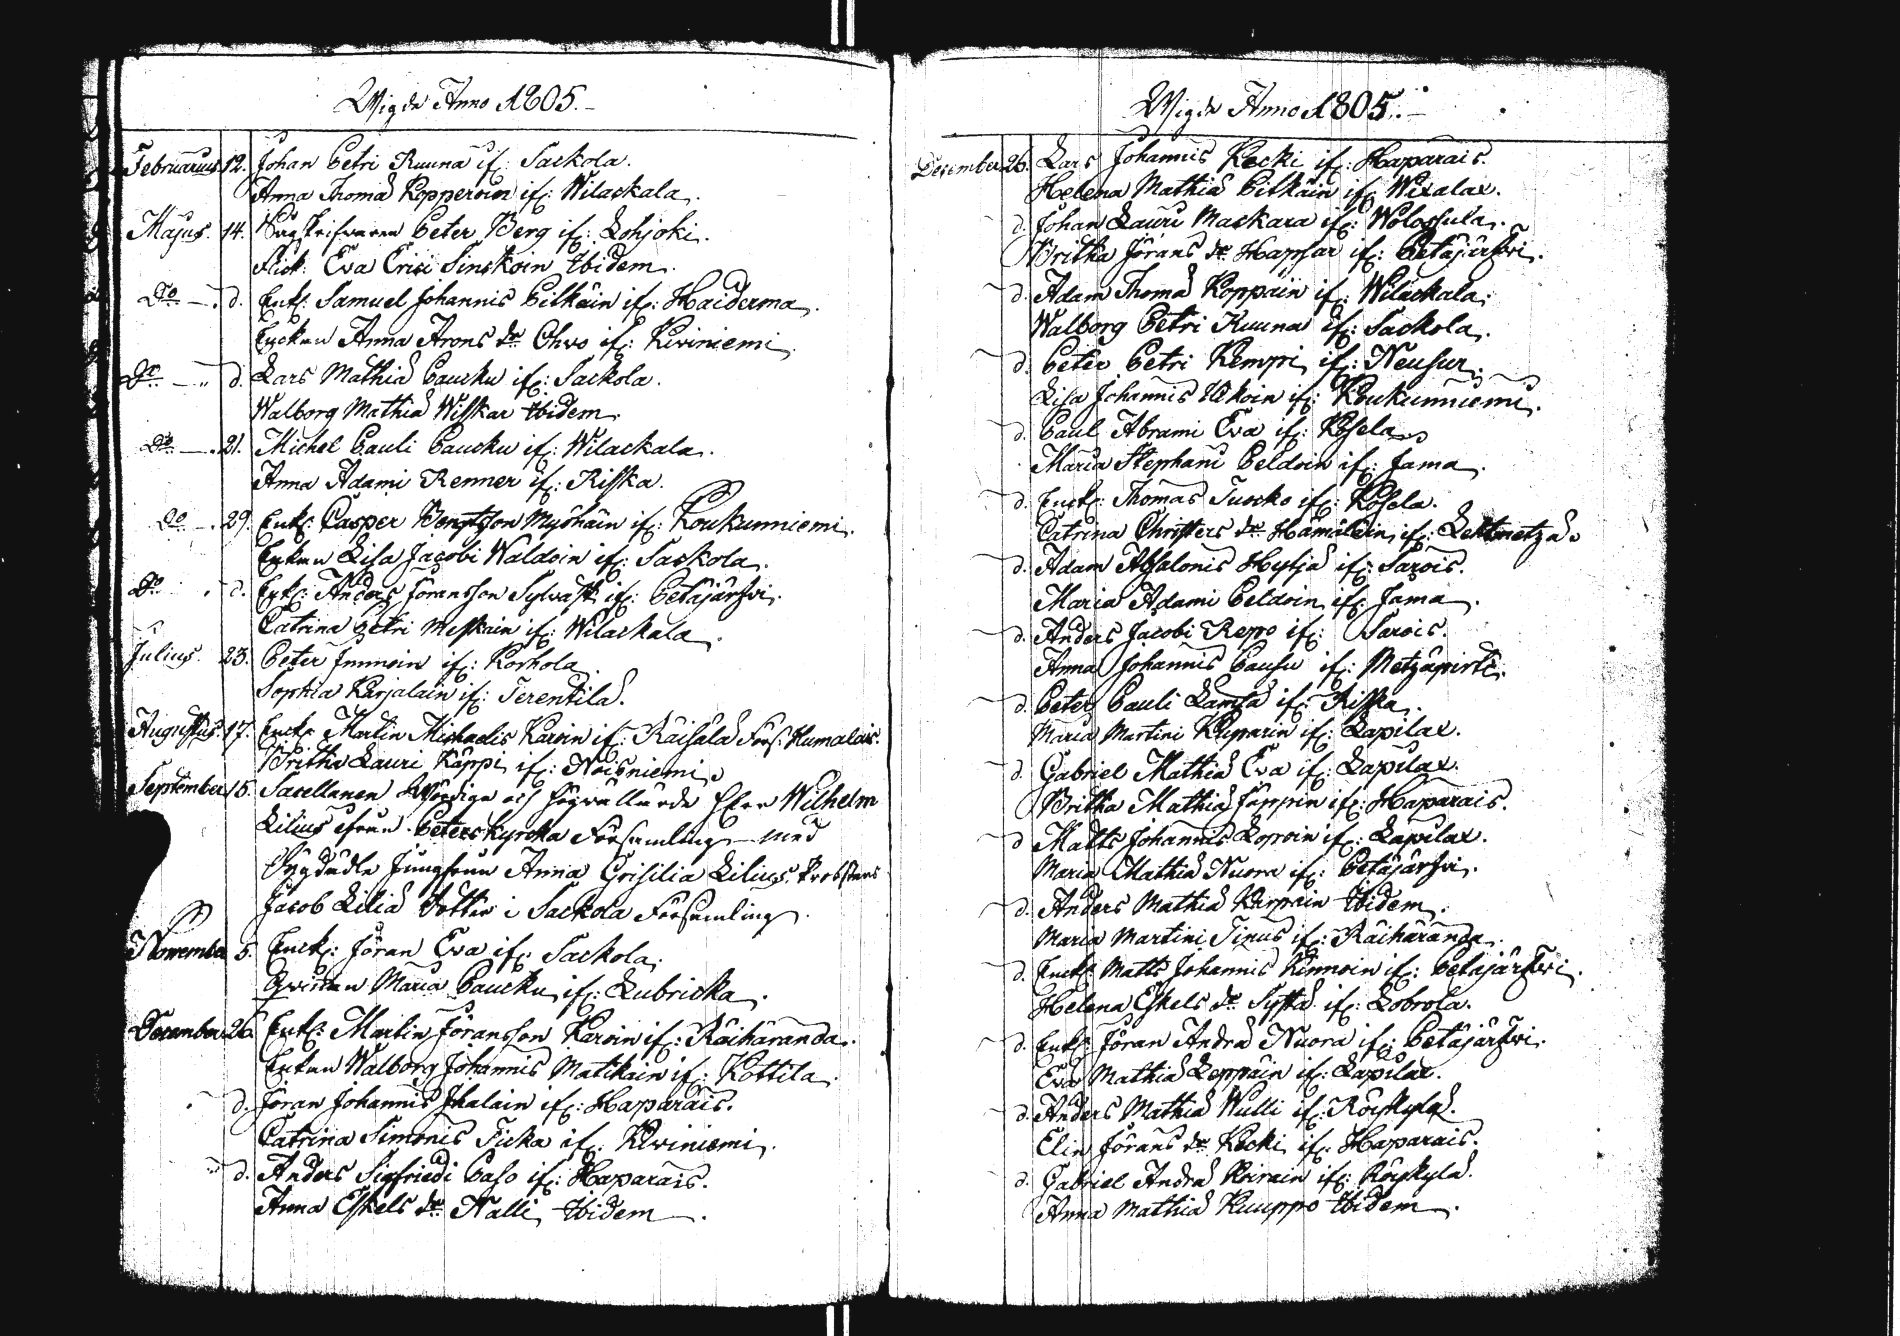 Wigde Anno 1805.
Februarius 12. Johan Petri Ruuna if: Sackola.
Anna Thomæ Kopperoin if: Wilackala.
Majus. 14. Peter Berg if: Lohjoki.
Flick: Eva Erici Sinskoin Ibidem.
Do d. Enkl: Samuel Johannis Pitkäin if: Haiderma.
Enckan Anna Arons dr Ohvo if: Kiviniemi.
Do d. Lars Mathiæ Paucku if: Sackola.
Walborg Mathiæ Wiskar Ibidem.
Do 21. Michel Pauli Paucku if: Wilackala.
Anna Adami Renner if: Riska.
Do 29. Enkl: Casper Bengtson Myöhäin if: Koukunniemi.
Enkan Lisa Jacobi Waldoin if: Sackola.
Do d. Enkl: Anders Jöransson Sylväst if: Petäjärfvi.
Catrina Petri Meskain if: Wilackala.
Julius. 23. Peter Immoin if: Korhola.
Sophia Karjalain if: Terentilä.
Augustus. 17. Enckl: Martin Michaelis Karoin if: Räisälä Förs: Kumalais.
Britha Lauri Käppi if: Noisniemi.
September 15. Sacellanen Wördige och Högvällärde Herr Wilhelm
Lilius ifrån Peterskyrcka Församling med
Dygdädla Jungfrun Anna Grisilia Lilius, Probstens
Jacob Liliæ Dotter i Sackola Församling.
November 5. Enckl: Jöran Eva if: Sackola.
Qvinnan Maria Paucku if: Lubricka.
December 26. Enkl: Martin Jöransson Karoin if: Räihäranda.
Enkan Walborg Johannis Matikain if: Kottila.
d. Jöran Johannis Ihalain if: Haparais.
Catrina Simonis Ticka if: Kiviniemi.
d. Anders Sigfriedi Paso if: Haparais.
Anna Eskels dr Nalli Ibidem.
Wigde Anno 1805.
December 26. Lars Johannis Kecki if: Haparais.
Helena Mathiæ Pitkäin if: Wixalax.
d. Johan Lauri Mackara if: Wolossula.
Britha Jörans dr Hapsar if: Petäjärfvi.
d. Adam Thomæ Koppain if: Wilackala.
Walborg Petri Ruuna if: Sackola.
d. Peter Petri Kemppi if: Neusur.
Lisa Johannis Ukoin if: Koukunniemi.
d. Paul Abrami Eva if: Kösela.
Maria Stephani Peldoin if: Jama.
d. Enckl: Thomas Tuocko if: Kösela.
Catrina Christers dr Hämäläin if: Lehtmetzä.
d. Adam Absalonis Hyljä if: Sarois.
Maria Adami Peldoin if: Jama.
d. Anders Jacobi Repo if: Sarois.
Anna Johannis Pausu if: Metzäpirti.
d. Peter Pauli Lamsä if: Riska.
Maria Martini Kuparin if: Lapilax.
d. Gabriel Mathiæ Eva if: Lapilax.
Britha Mathiæ Jäppin if: Haparais.
d. Matts Johannis Lopoin if: Lapilax.
Maria Mathiæ Nuora if: Petäjärfvi.
d. Anders Mathiæ Karpain Ibidem.
Maria Martini Tinus if: Räihäranda.
d. Enckl: Matts Johannis Kinnoin if: Petäjärfvi.
Helena Eskels dr Syttä if: Lobrola.
d. Enkl: Jöran Andræ Nuora if: Petäjärfvi.
Eva Mathiæ Leppäin if: Lapilax.
d. Anders Mathiæ Wulli if: Röyskylä.
Elin Jörans dr Kecki if: Haparais.
d. Gabriel Andræ Koirain if: Röyskylä.
Anna Mathiæ Kuuppo Ibidem.